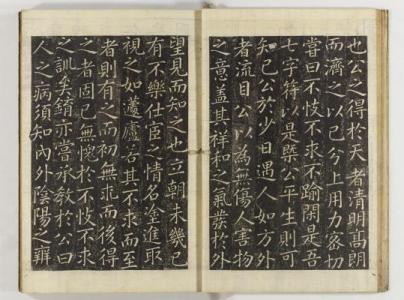 也公之得於天者清明高朗
而濟之以已分上用力省切
嘗曰不忮不求不踰閑是吾
七字符以是槩公平生則可
知已公於少日遇人如方外
者流目公以為無傷人害物
之意盖其祥和之氣發於外
望見而知之也立朝未幾已
有不樂仕臣之情名塗進取
視之如蘧廬若其不求而至
者則有之而初無求而後得
之者固已無愧於不忮不求
之訓矣錥亦嘗承教於公曰
人之病須知內外陰陽之辨